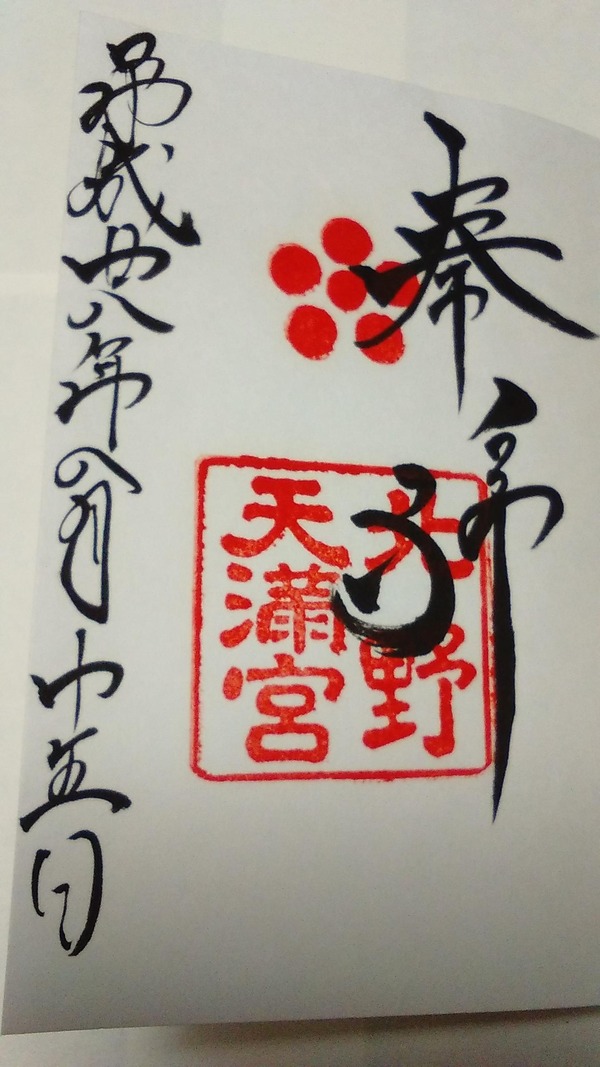 奉拝
北野
天滿宮
平成廿八年月廿五日